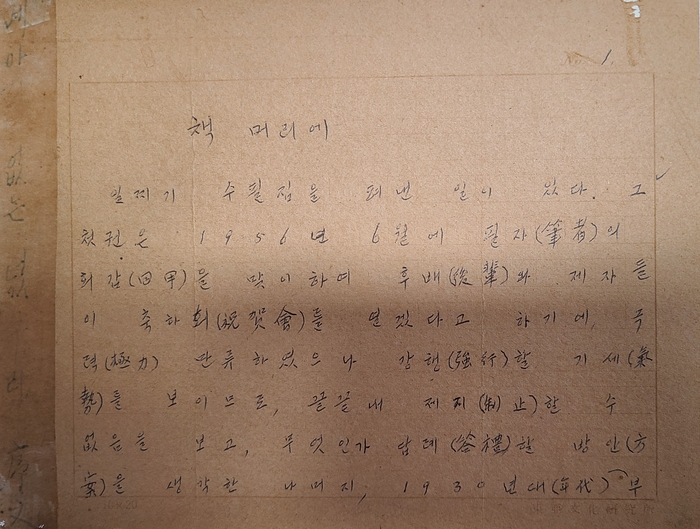 1.
책 머리에
일찌기 수필집을 펴낸 일이 있다. 그
첫권은 1956년 6월에 필자(筆者)의
회갑(回甲)을 맞이하여 후배(後輩)와 제자들
이 축하회(祝賀會)를 연겠다고 하기에, 극
력(極力) 만류하였으나 강행(強行)할 기세(氣
勢)를 보이므로, 끝끝내 제지(制止)할 수
없음을 보고, 무엇인가 답례(答禮)할 방안(方
案)을 생각한 나머지, 1930년대(年代) 부